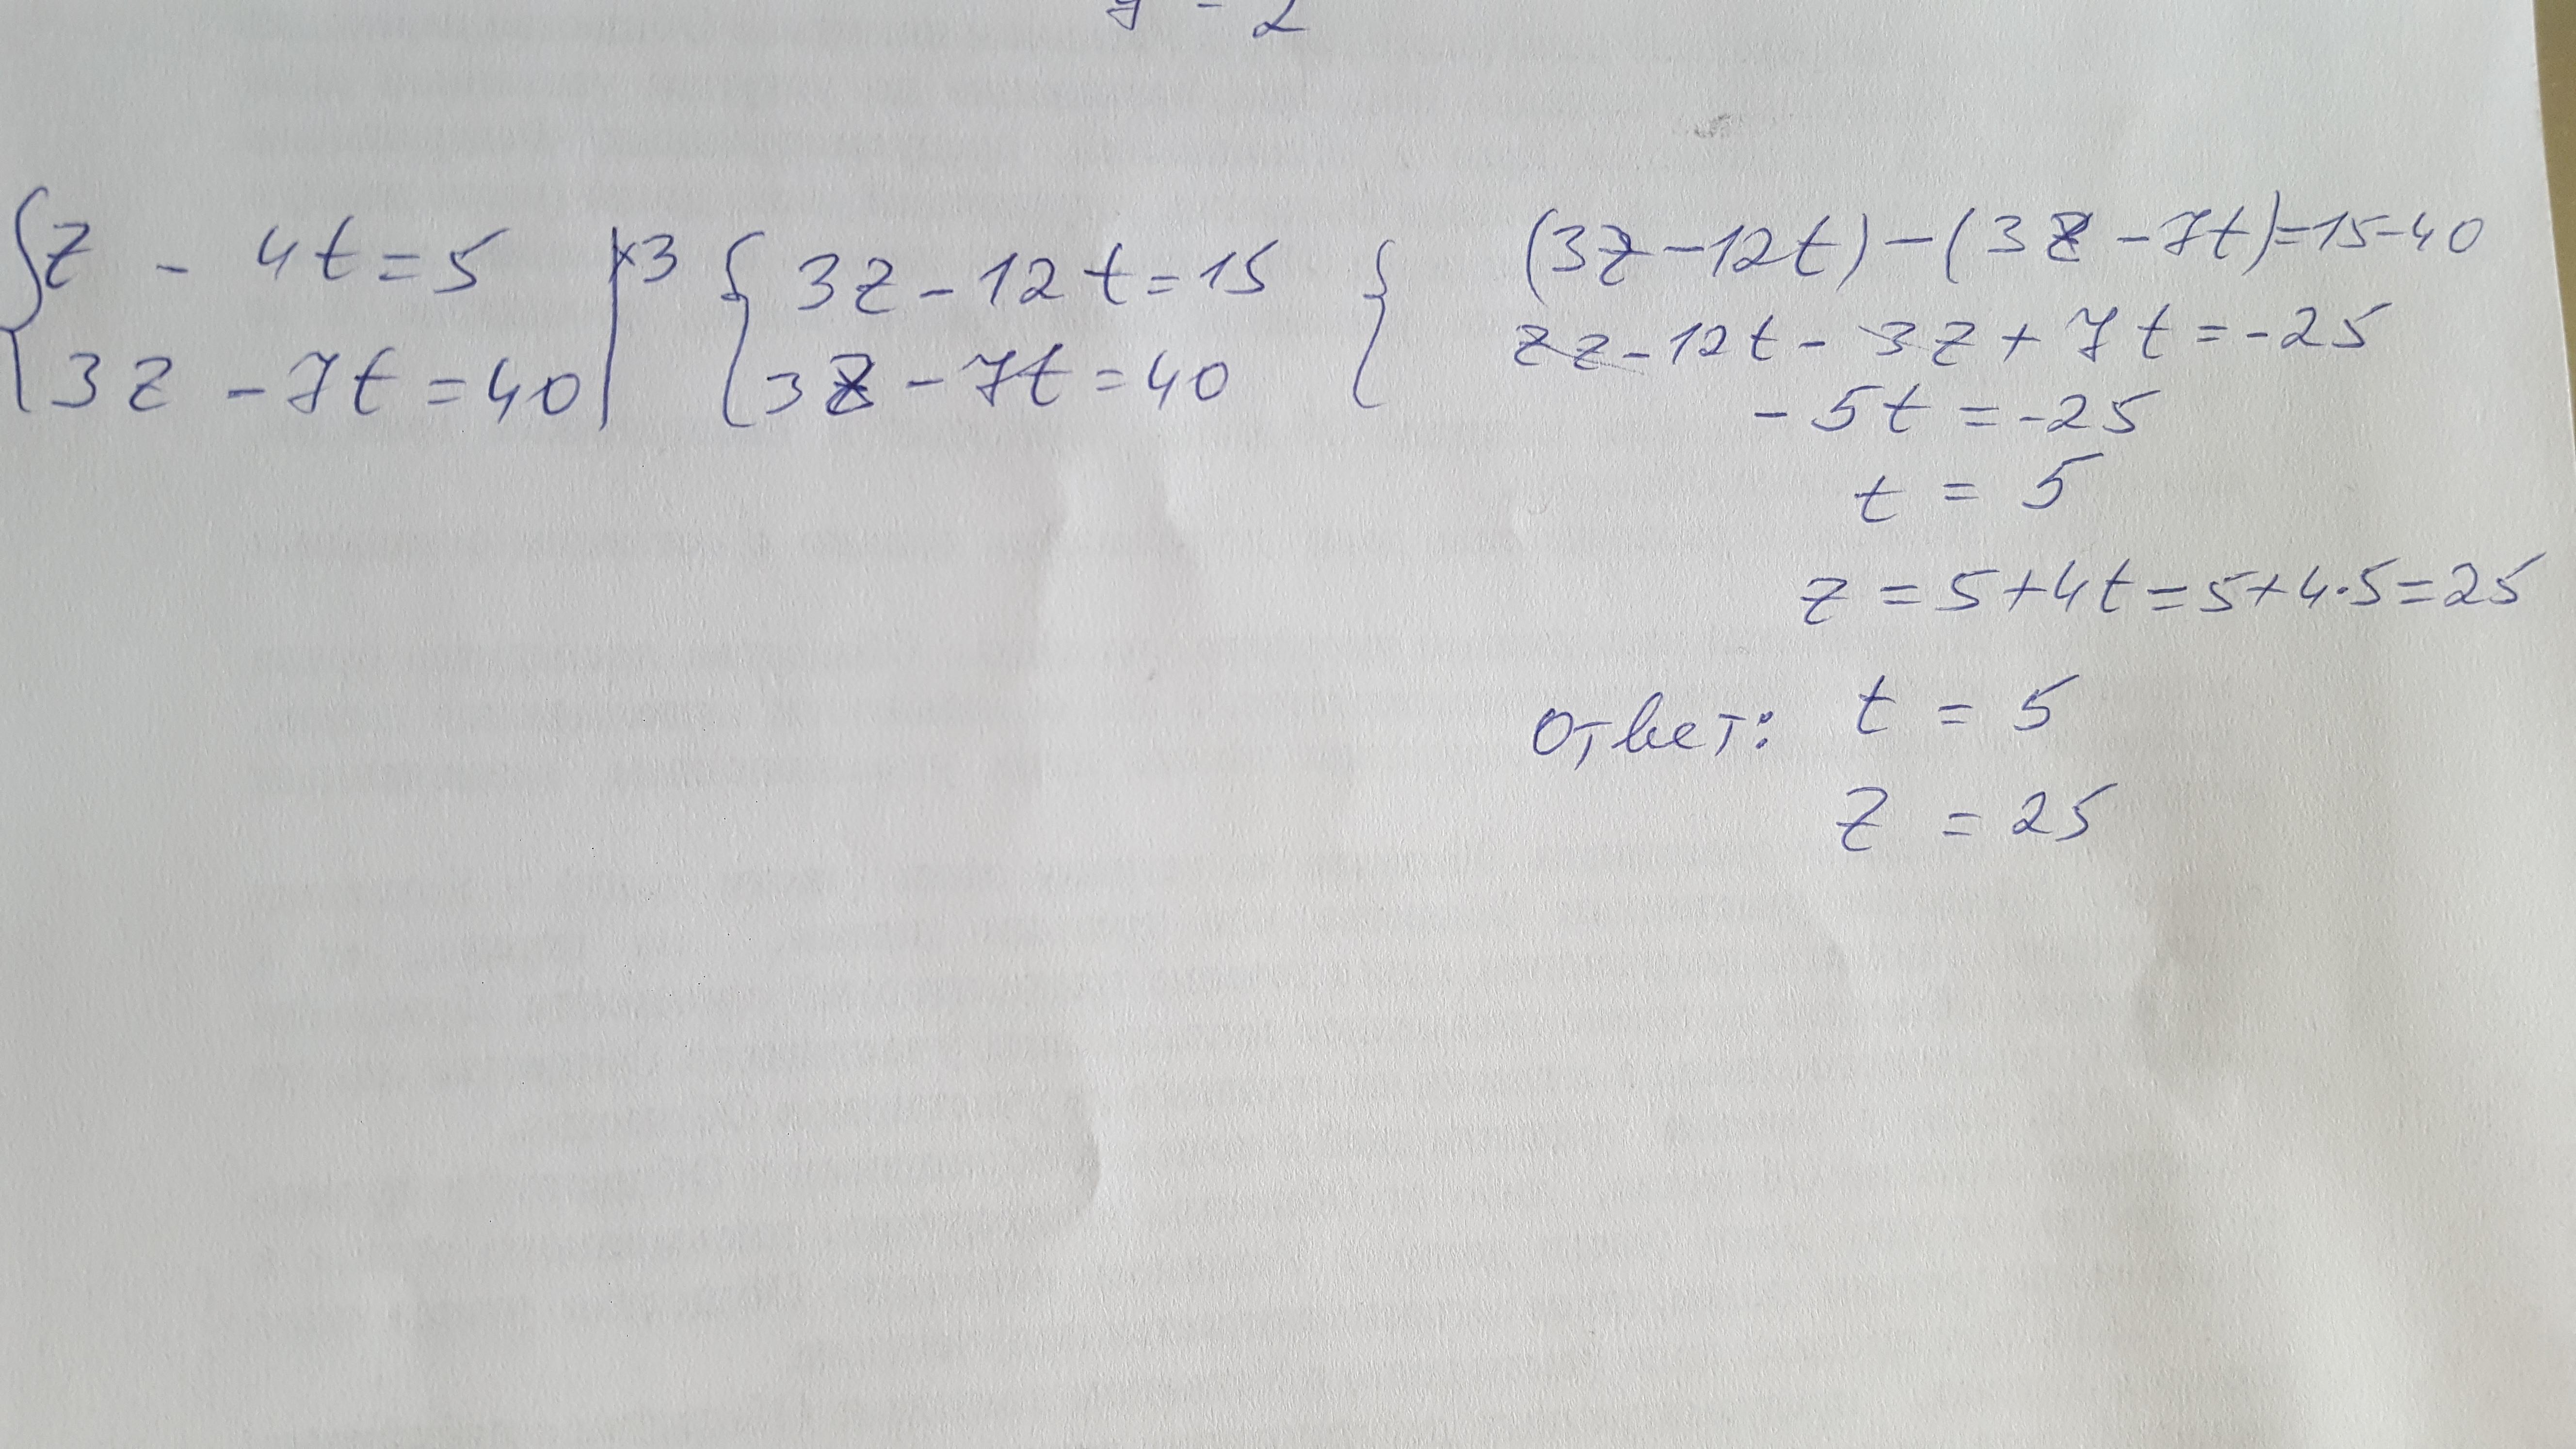 y = 2
{ z - 4t = 5 | ×3 { 3z - 12t = 15 {
3z - 7t = 40 | 3z - 7t = 40
(3z - 12t) - (3z - 7t) = 15 - 40
zz - 12t - 3z + 7t = -25
- 5t = -25
t = 5
z = 5 + 4t = 5 + 4·5 = 25
Ответ: t = 5
z = 25